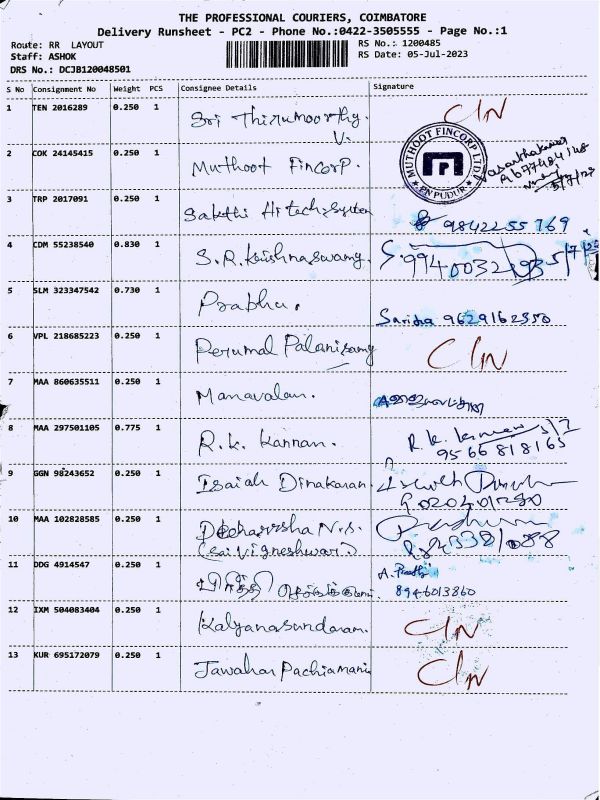 THE PROFESSIONAL COURIERS, COIMBATORE
Delivery Runsheet - PC2 - Phone No.:0422-3505555 - Page No.:1
Route: RR LAYOUT
RS No.: 1200485
Staff: ASHOK
RS Date: 05-Jul-2023
DRS No.: DCJB120048501
S No Consignment No Weight PCS Consignee Details Signature
1 TEN 2016289 0.250 1 Sri Thirumoorthy. V. C/N
2 COK 24145415 0.250 1 Muthoot Fincorp. MUTHOOT FINCORP LTD PN PUDUR
5/7/23
3 TRP 2017091 0.250 1 Sakthi Hitech System 9842255769
4 CDM 55238540 0.830 1 S.R. Krishnaswamy.
5 SLM 323347542 0.730 1 Prabhu. Saritha 9629162350
6 VPL 218685223 0.250 1 Perumal Palanisamy C/N
7 MAA 860635511 0.250 1 Manavalan.
8 MAA 297501105 0.775 1 R.K. Kannan. R.K.
9566818165
9 GGN 98243652 0.250 1 Isaiah Dinakaran
10 MAA 102828585 0.250 1 N.S.
(Sai Vigneshwar)
11 DDG 4914547 0.250 1 A.
8946013860
12 IXM 504083404 0.250 1 Kalyanasundaram. C/N
13 KUR 695172079 0.250 1 Jawahar Pachiamani C/N